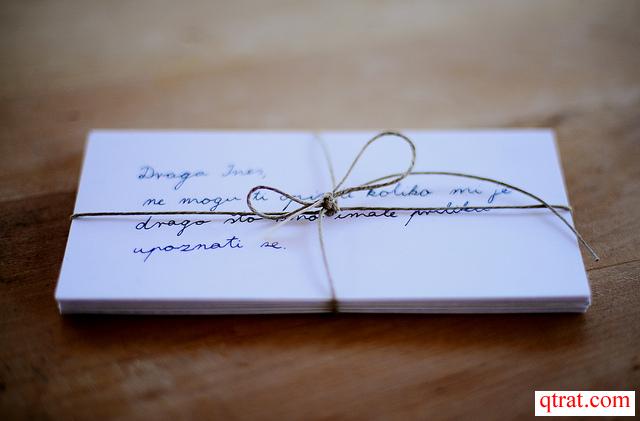 Draga Ines,
ne mogu ti opisati koliko mi je
drago što imate priliku
upoznati se.
qtrat.com